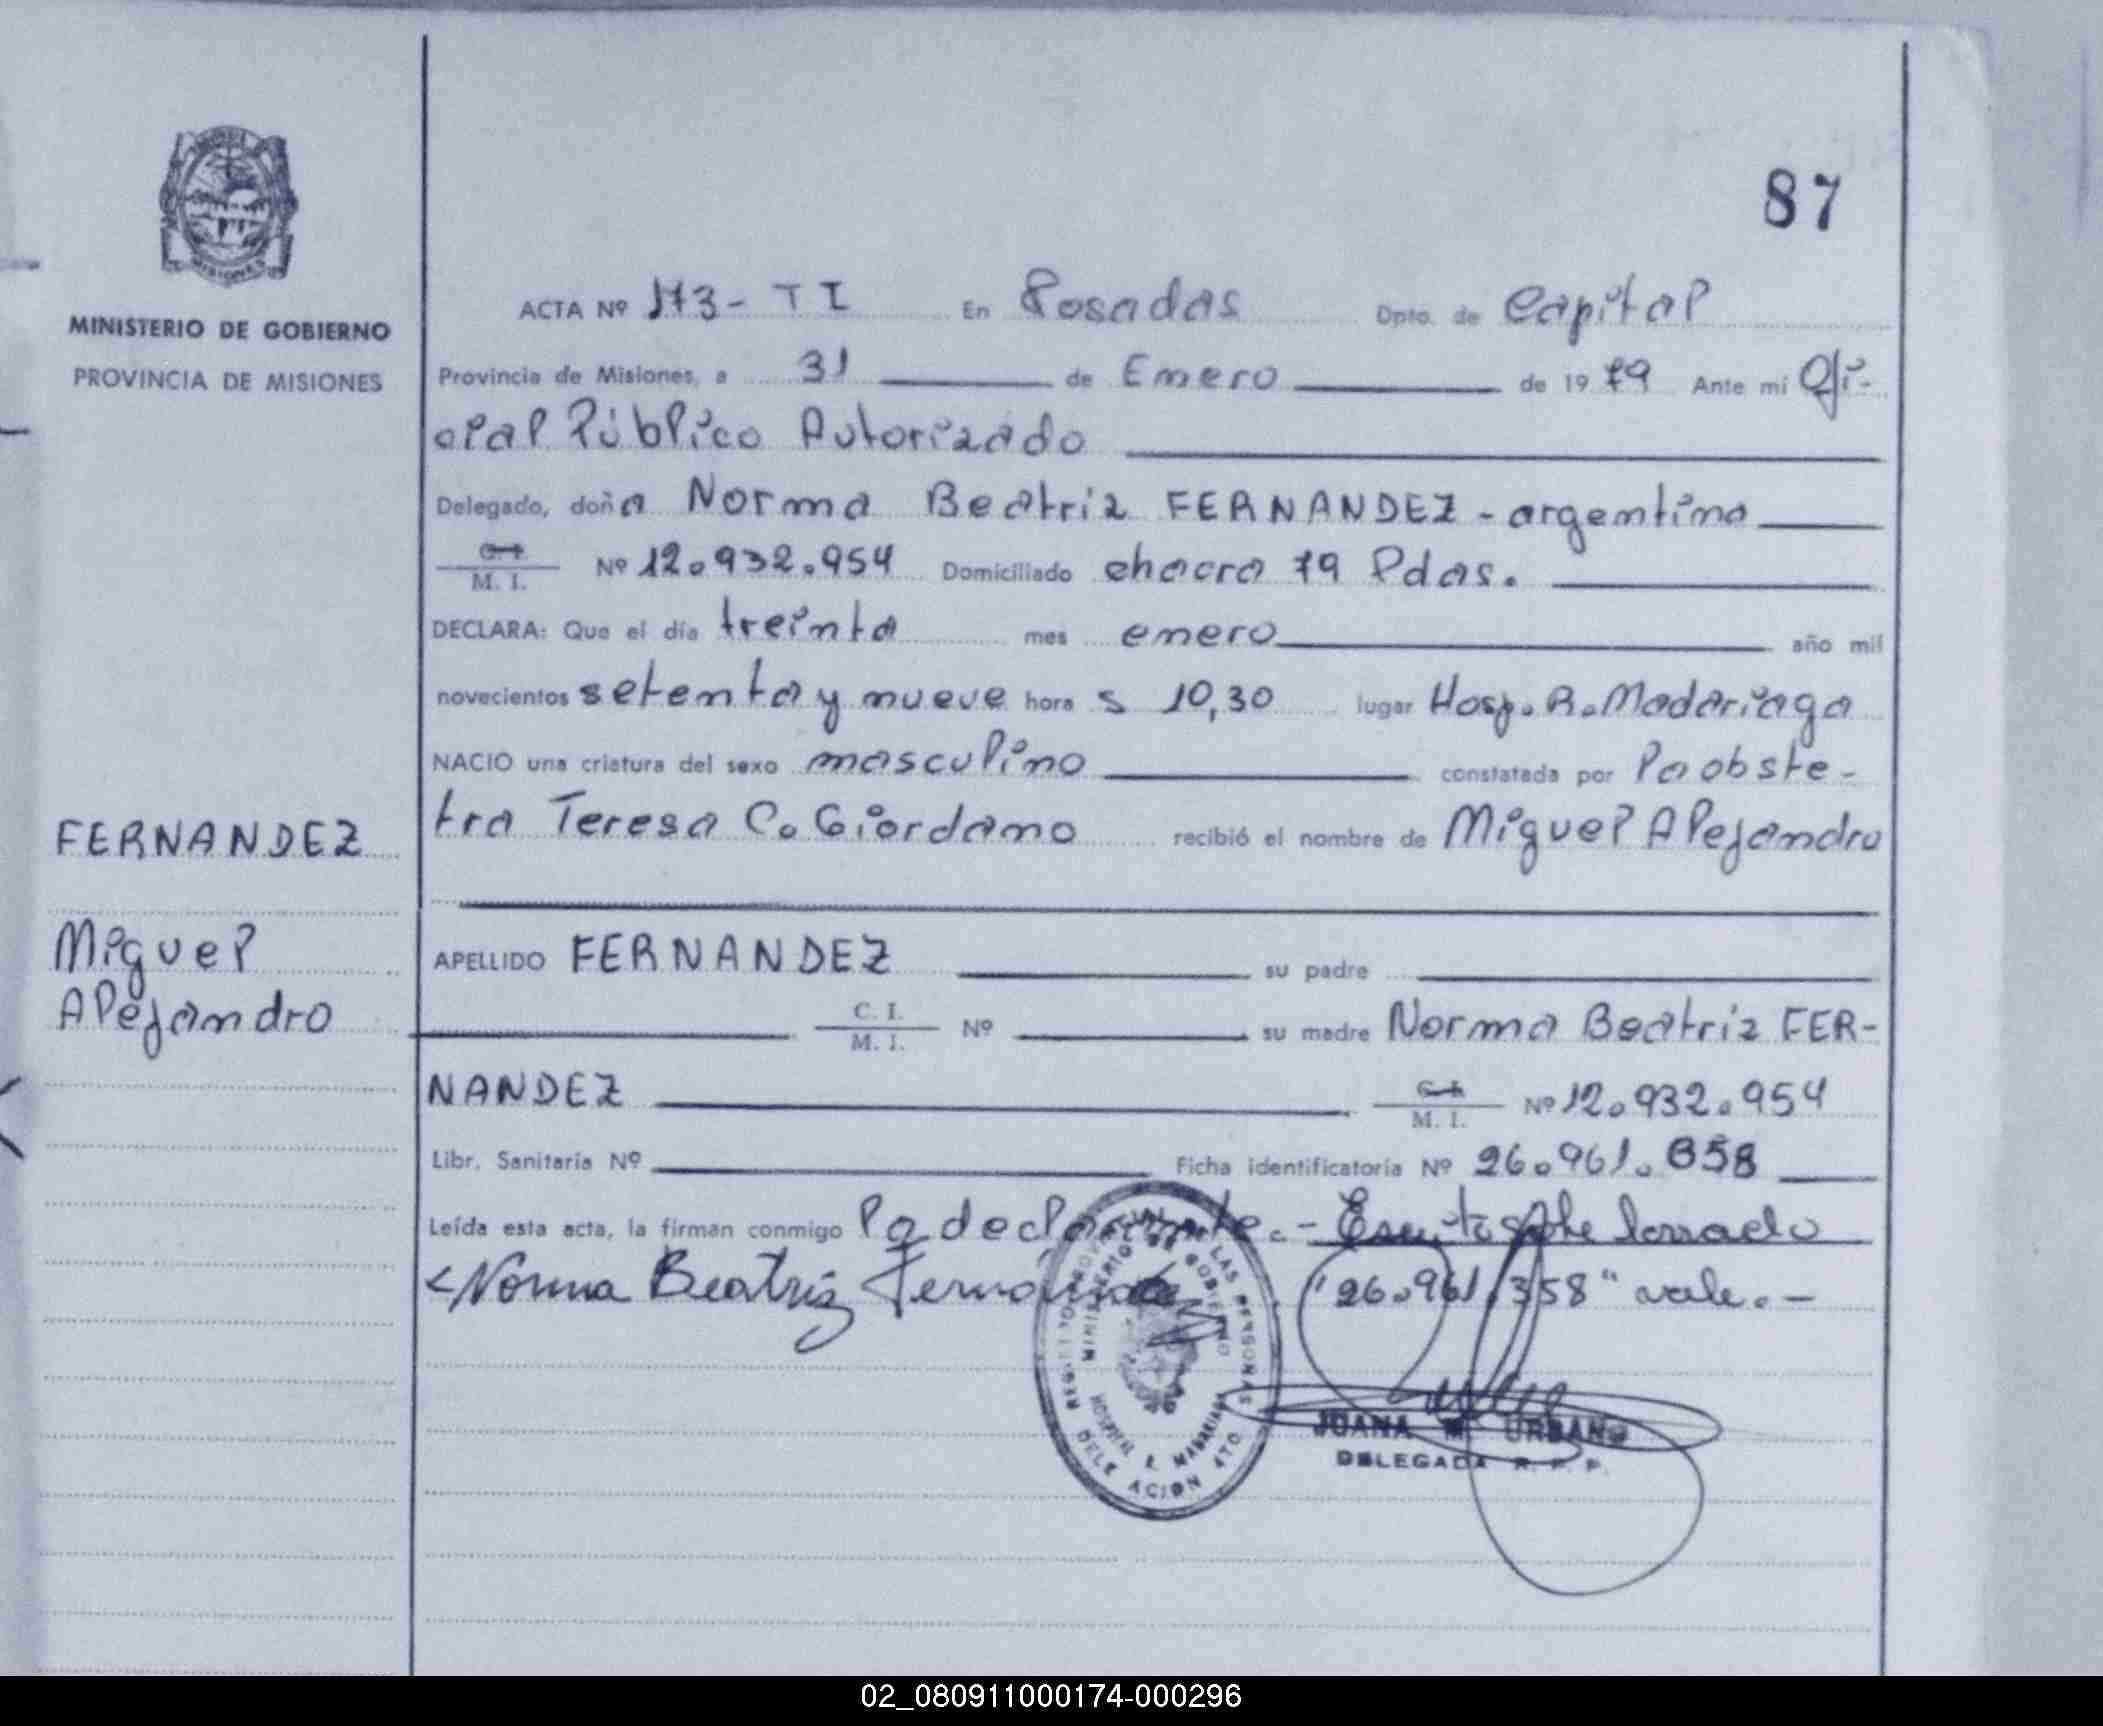 87
MINISTERIO DE GOBIERNO
PROVINCIA DE MISIONES
ACTA Nº 173- TI En Posadas Dpto. de Capital
Provincia de Misiones, a 31 de Enero de 1979 Ante mi Ofi-
cial Público Autorizado
Delegado, doña Norma Beatriz FERNANDEZ - argentina
C. I. / M. I. Nº 12.932.954 Domiciliado chacra 79 Pdas.
DECLARA: Que el día treinta mes enero año mil
novecientos setenta y nueve hora s 10,30 lugar Hosp. R. Madariaga
NACIO una criatura del sexo masculino constatada por la obste-
tra Teresa C. Giordano recibió el nombre de Miguel Alejandro
FERNANDEZ
Miguel
Alejandro
APELLIDO FERNANDEZ su padre
C. I. / M. I. Nº su madre Norma Beatriz FER-
NANDEZ C. I. / M. I. Nº 12.932.954
Libr. Sanitaria Nº Ficha identificatoria Nº 26.961.358
Leída esta acta, la firman conmigo la declarante. - Escrito sobre borrado
Norma Beatriz Fernandez "26.961.358" vale. -
REGISTRO PROVINCIAL DE LAS PERSONAS
MINISTERIO DE GOBIERNO
HOSPITAL R. MADARIAGA
DELEGACION 4TO
JUANA M. URBANO
DELEGADA R. P. P.
02_080911000174-000296